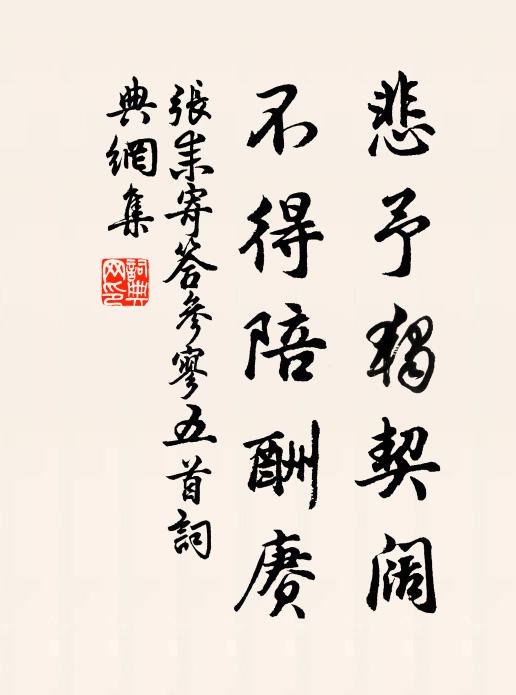 悲予獨契阔
不得陪酬赓
張耒寄答參寥五首詞
典網集
詞典网印